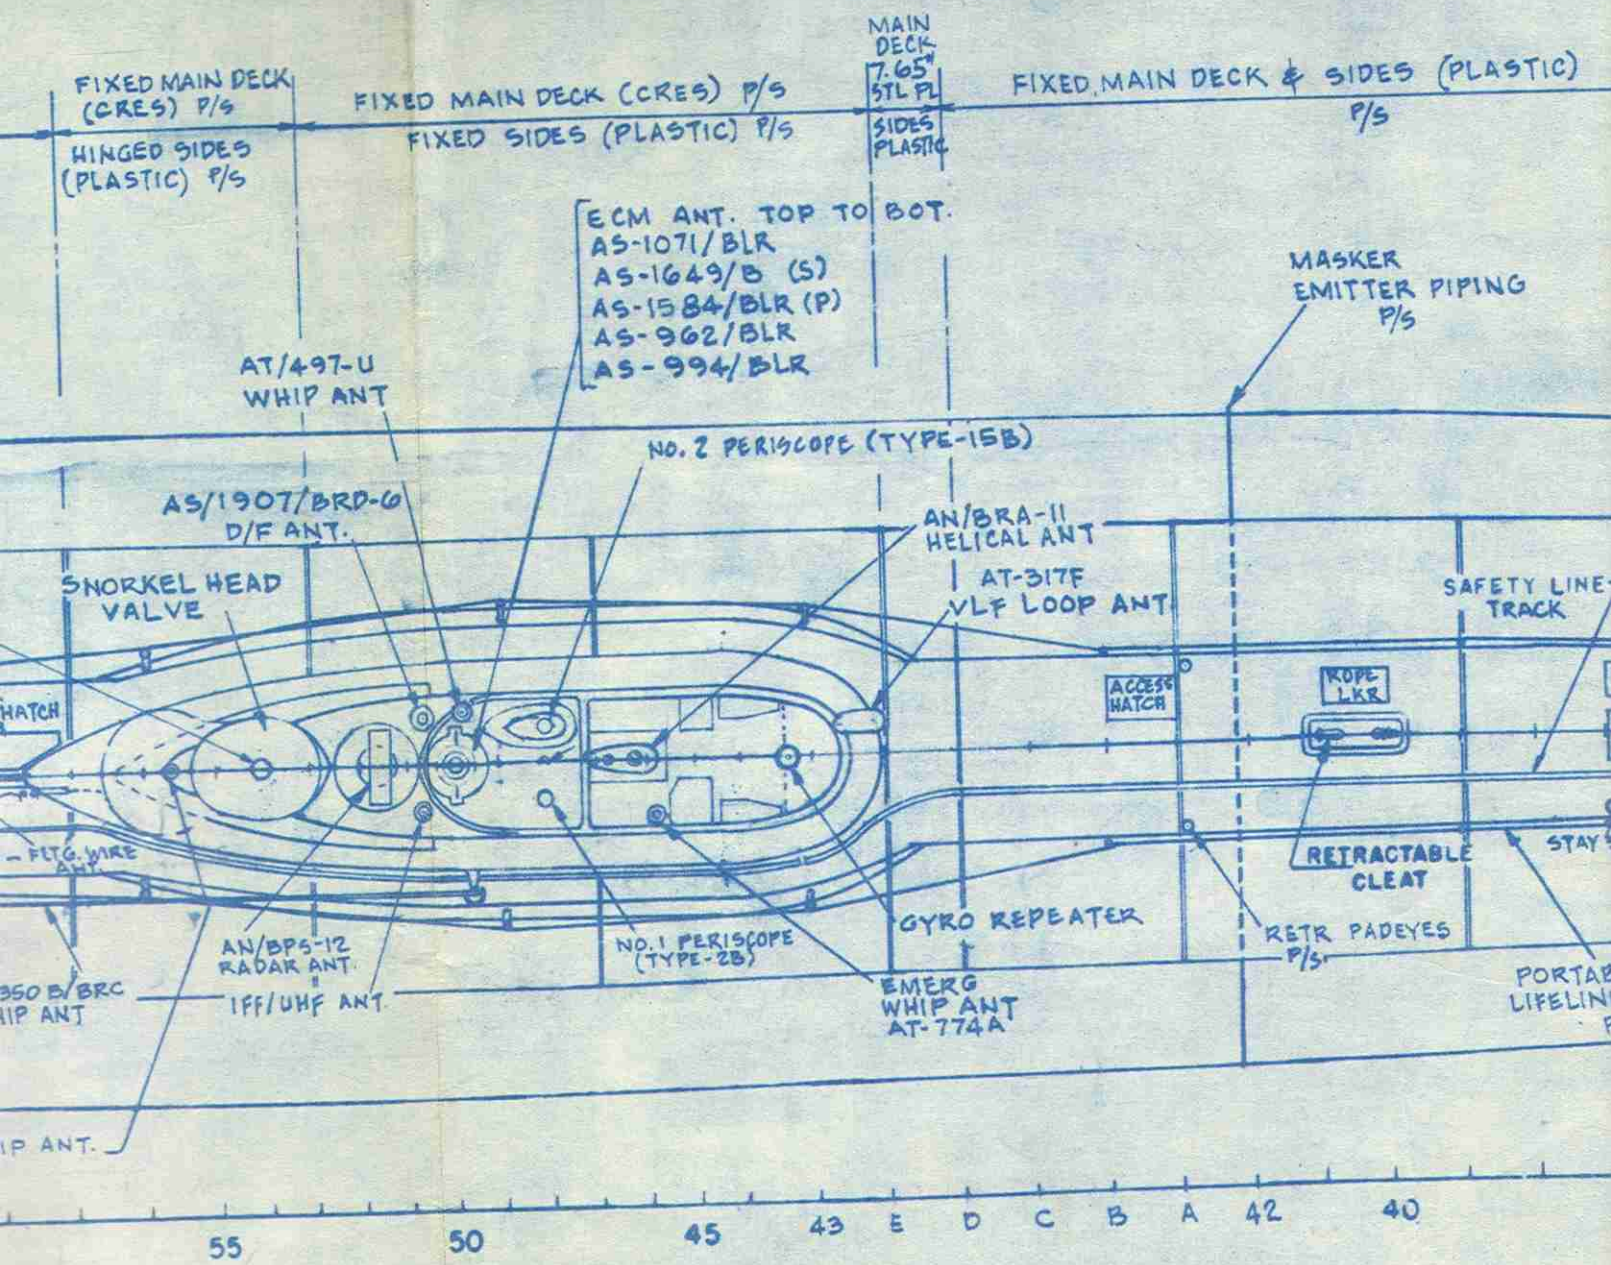 FIXED MAIN DECK
(CRES) P/S
HINGED SIDES
(PLASTIC) P/S
FIXED MAIN DECK (CRES) P/S
FIXED SIDES (PLASTIC) P/S
MAIN
DECK
7.65#
STL PL
SIDES
PLASTIC
FIXED MAIN DECK & SIDES (PLASTIC)
P/S
ECM ANT. TOP TO BOT.
AS-1071/BLR
AS-1649/B (S)
AS-1584/BLR (P)
AS-962/BLR
AS-994/BLR
MASKER
EMITTER PIPING
P/S
AT/497-U
WHIP ANT
NO. 2 PERISCOPE (TYPE-15B)
AS/1907/BRD-6
D/F ANT.
AN/BRA-11
HELICAL ANT
AT-317F
VLF LOOP ANT
SNORKEL HEAD
VALVE
SAFETY LINE
TRACK
HATCH
ACCESS
HATCH
ROPE
LKR
- FLTG. WIRE
ANT.
RETRACTABLE
CLEAT
STAY
AN/BPS-12
RADAR ANT.
IFF/UHF ANT.
NO. 1 PERISCOPE
(TYPE-2B)
GYRO REPEATER
RETR PADEYES
P/S
350 B/BRC
HIP ANT
EMERG
WHIP ANT
AT-774A
PORTAB
LIFELIN
P
IP ANT.
55 50 45 43 E D C B A 42 40